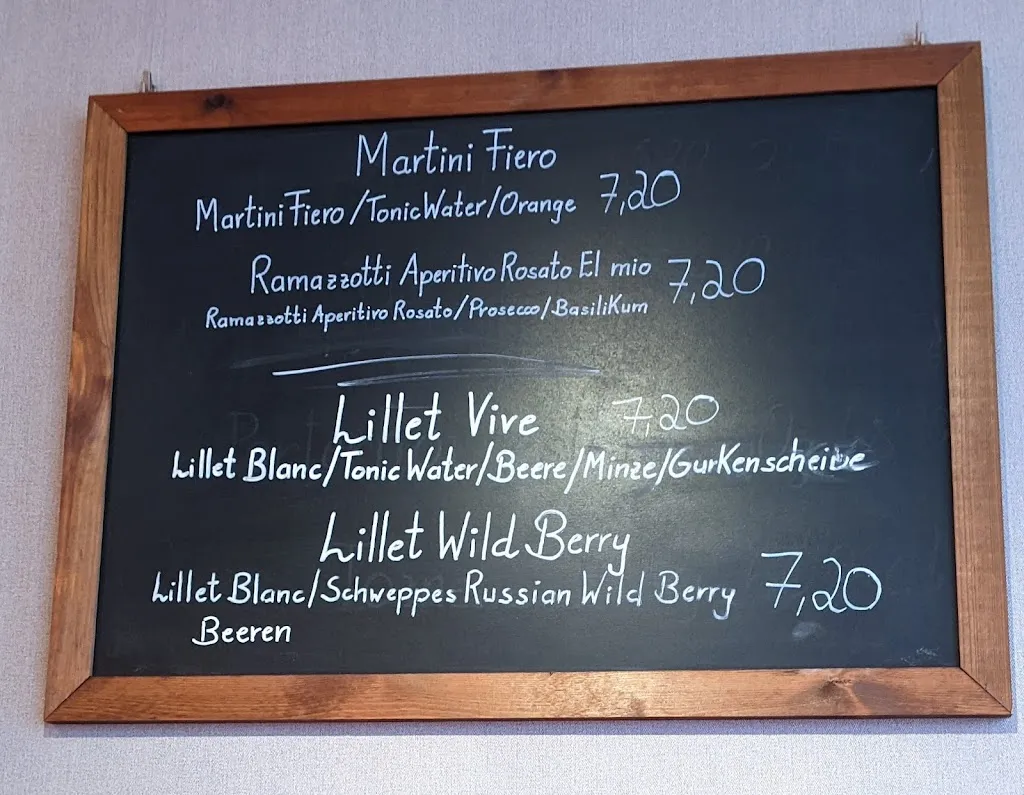 Martini Fiero
Martini Fiero/Tonic Water/Orange 7,20
Ramazzotti Aperitivo Rosato El mio 7,20
Ramazzotti Aperitivo Rosato/Prosecco/Basilikum
Lillet Vive 7,20
Lillet Blanc/Tonic Water/Beere/Minze/Gurkenscheibe
Lillet Wild Berry
Lillet Blanc/Schweppes Russian Wild Berry 7,20
Beeren